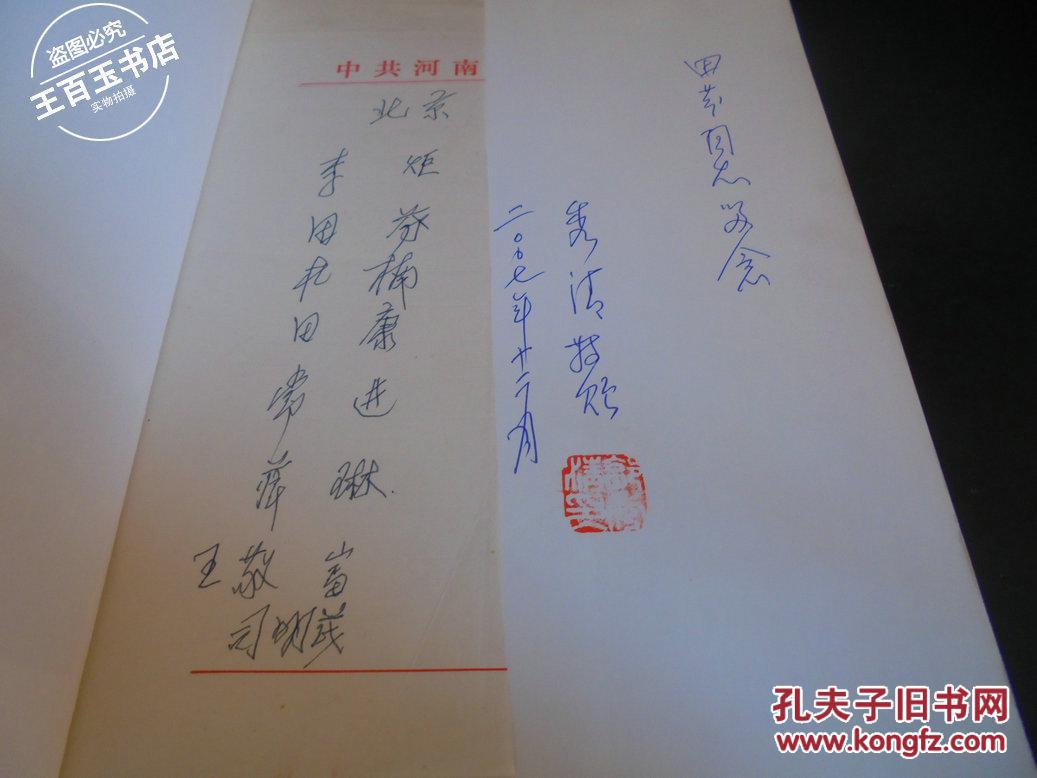 盗图必究
王百玉书店
实物拍摄
中共河南
北京
李 炬
田 芬
杜 楠
田 康
常 进
薛 琳
王敬
司明茂
田芬同志留念
秀清敬赠
二〇〇七年廿二月
孔夫子旧书网
www.kongfz.com